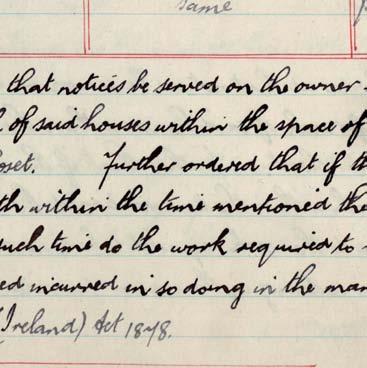 same
that notices be served on the owner
of said houses within the space of
Further ordered that if
within the time mentioned the
such time do the work required to
incurred in so doing in the
(Ireland) Act 1878.